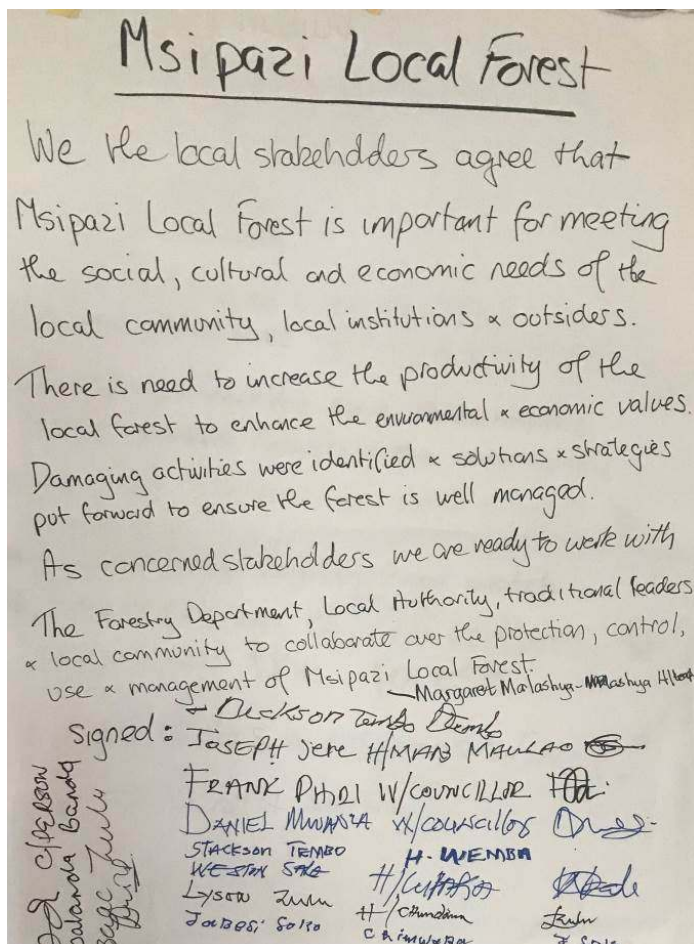 Msipazi Local Forest
We the local stakeholders agree that
Msipazi Local Forest is important for meeting
the social, cultural and economic needs of the
local community, local institutions & outsiders.
There is need to increase the productivity of the
local forest to enhance the environmental & economic values.
Damaging activities were identified & solutions & strategies
put forward to ensure the forest is well managed.
As concerned stakeholders we are ready to work with
The Forestry Department, Local Authority, traditional leaders
& local community to collaborate over the protection, control,
use & management of Msipazi Local Forest.
Margaret Malashya
Signed:
Dickson Tembo
JOSEPH Jere H/MAN
FRANK PHIRI W/COUNCILLOR
DANIEL MWANZA W/COUNCILLOR
STACKSON TEMBO H. WEMBA
Lyson Zulu
C/PERSON
Banda
Zulu